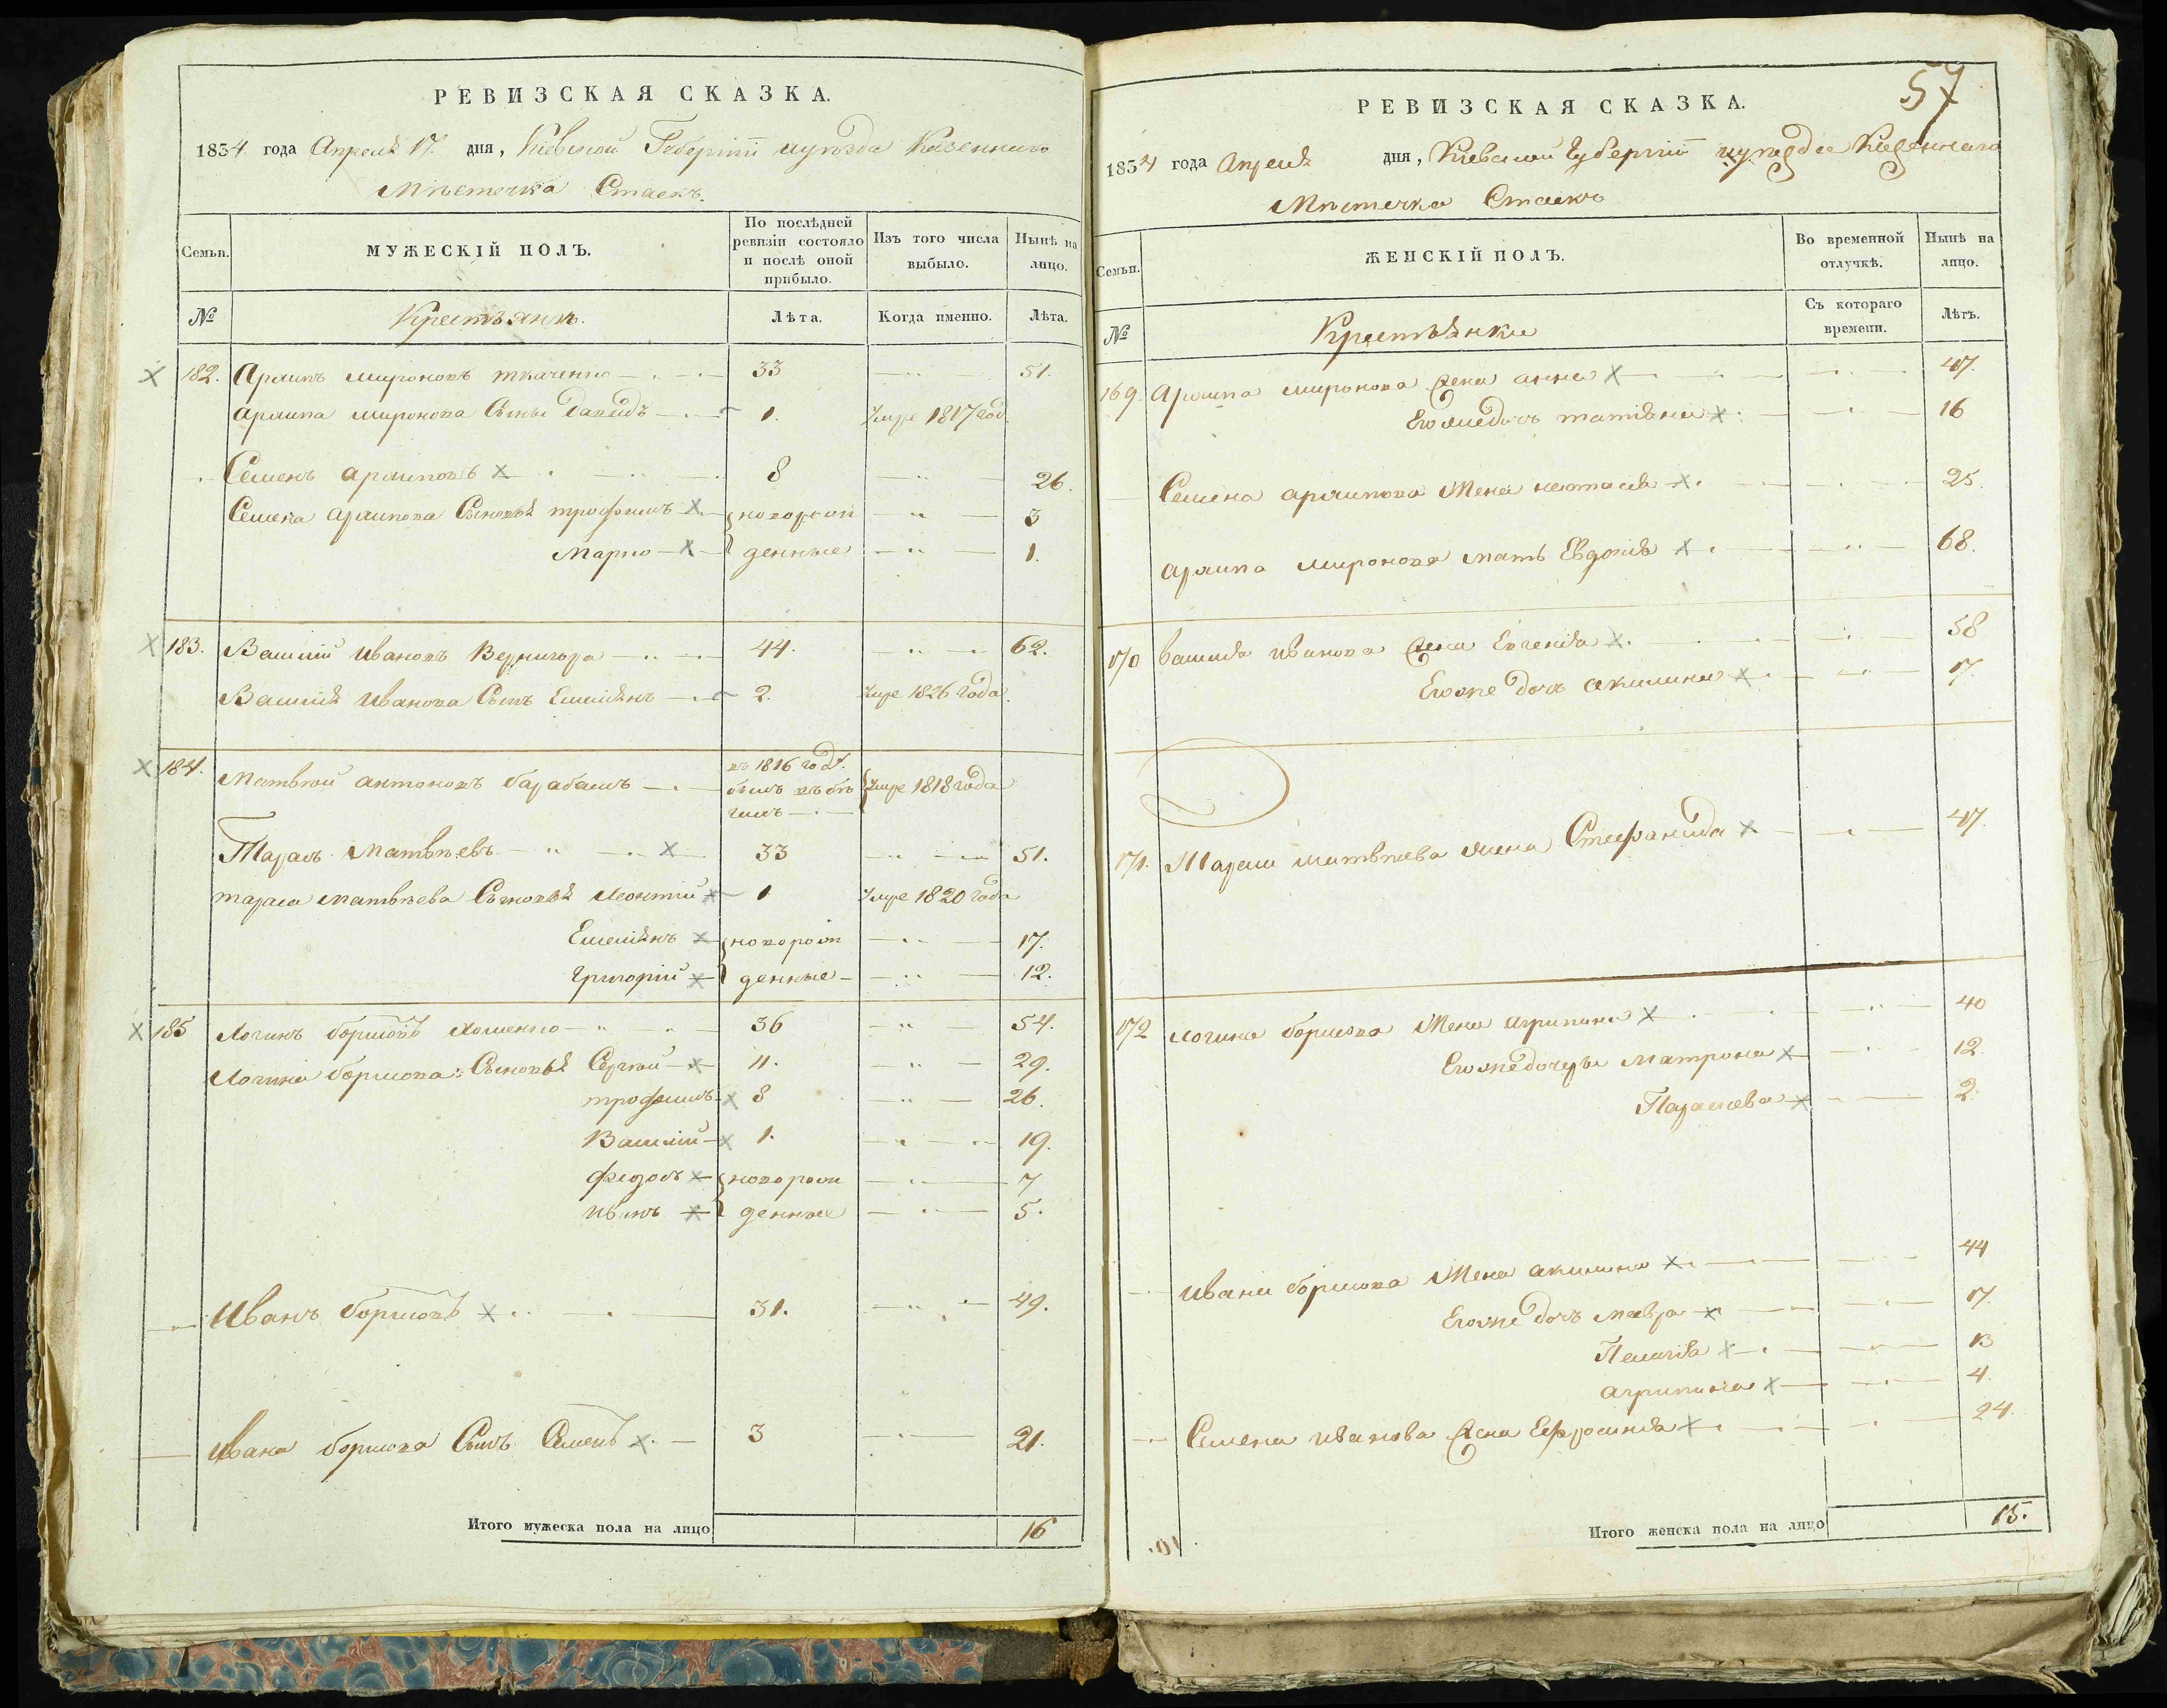 РЕВИЗСКАЯ СКАЗКА.
1834 года Апреля 17. дня, Кіевской Губерніи и уѣзда Казеннаго
Мѣстечка Стаекъ.
Семьи.
МУЖЕСКІЙ ПОЛЪ.
По послѣдней ревизіи состояло и послѣ оной прибыло.
Изъ того числа выбыло.
Нынѣ на лицо.
№
Крестьянъ.
Лѣта.
Когда именно.
Лѣта.
182. Архипъ мироновъ ткаченко 33 51.
архипа миронова Сыны Давидъ 1. Умре 1817 год.
Семенъ архиповъ 8 26.
Семена архипова Сыновья трофимъ новорож 3
Марко денные 1.
183. Василій Ивановъ Вернигора 44. 62.
Василія Иванова Сынъ Емелянъ 2. Умре 1826 года.
184. Матвѣй антоновъ барабашъ въ 1816 годѣ. былъ въ бѣ гахъ Умре 1818 года
Тарасъ Матвѣевъ 33 51.
тараса матвѣева Сыновья Леонтій 1 Умре 1820 года
Емелянъ новорож 17.
Григорій денные 12.
185 Логинъ борисовъ 36 54.
Логина борисова Сыновья Сергѣй 11. 29.
трофимъ 8 26.
Василій 1. 19.
федоръ новорож 7
иванъ денные 5.
Иванъ борисовъ 31. 49.
Ивана борисова Сынъ Семенъ 3 21.
Итого мужеска пола на лицо 16
57
РЕВИЗСКАЯ СКАЗКА.
1834 года Апреля дня, Кіевской Губерніи и уѣзда Казеннаго
Мѣстечка Стаекъ
Семьи.
ЖЕНСКІЙ ПОЛЪ.
Во временной отлучкѣ.
Нынѣ на лицо.
№
Крестьянки
Съ котораго времени.
Лѣтъ.
169. Архипа миронова жена анна 47.
Его же дочь татіяна 16
Семена архипова Жена настасія 25.
архипа миронова мать Евдокія 68.
170 василія иванова жена Евгенія 58
Его же дочь акилина 17.
171. Тараса матвѣева жена Стефанида 47.
172 логина борисова Жена агрипина 40
Его же дочеры матрона 12.
Параскева 2.
ивана борисова Жена акилина 44
Его же дочь мавра 17.
Пелагія 13
агрипина 4.
Семена иванова жена Ефросинія 24.
Итого женска пола на лицо 15.